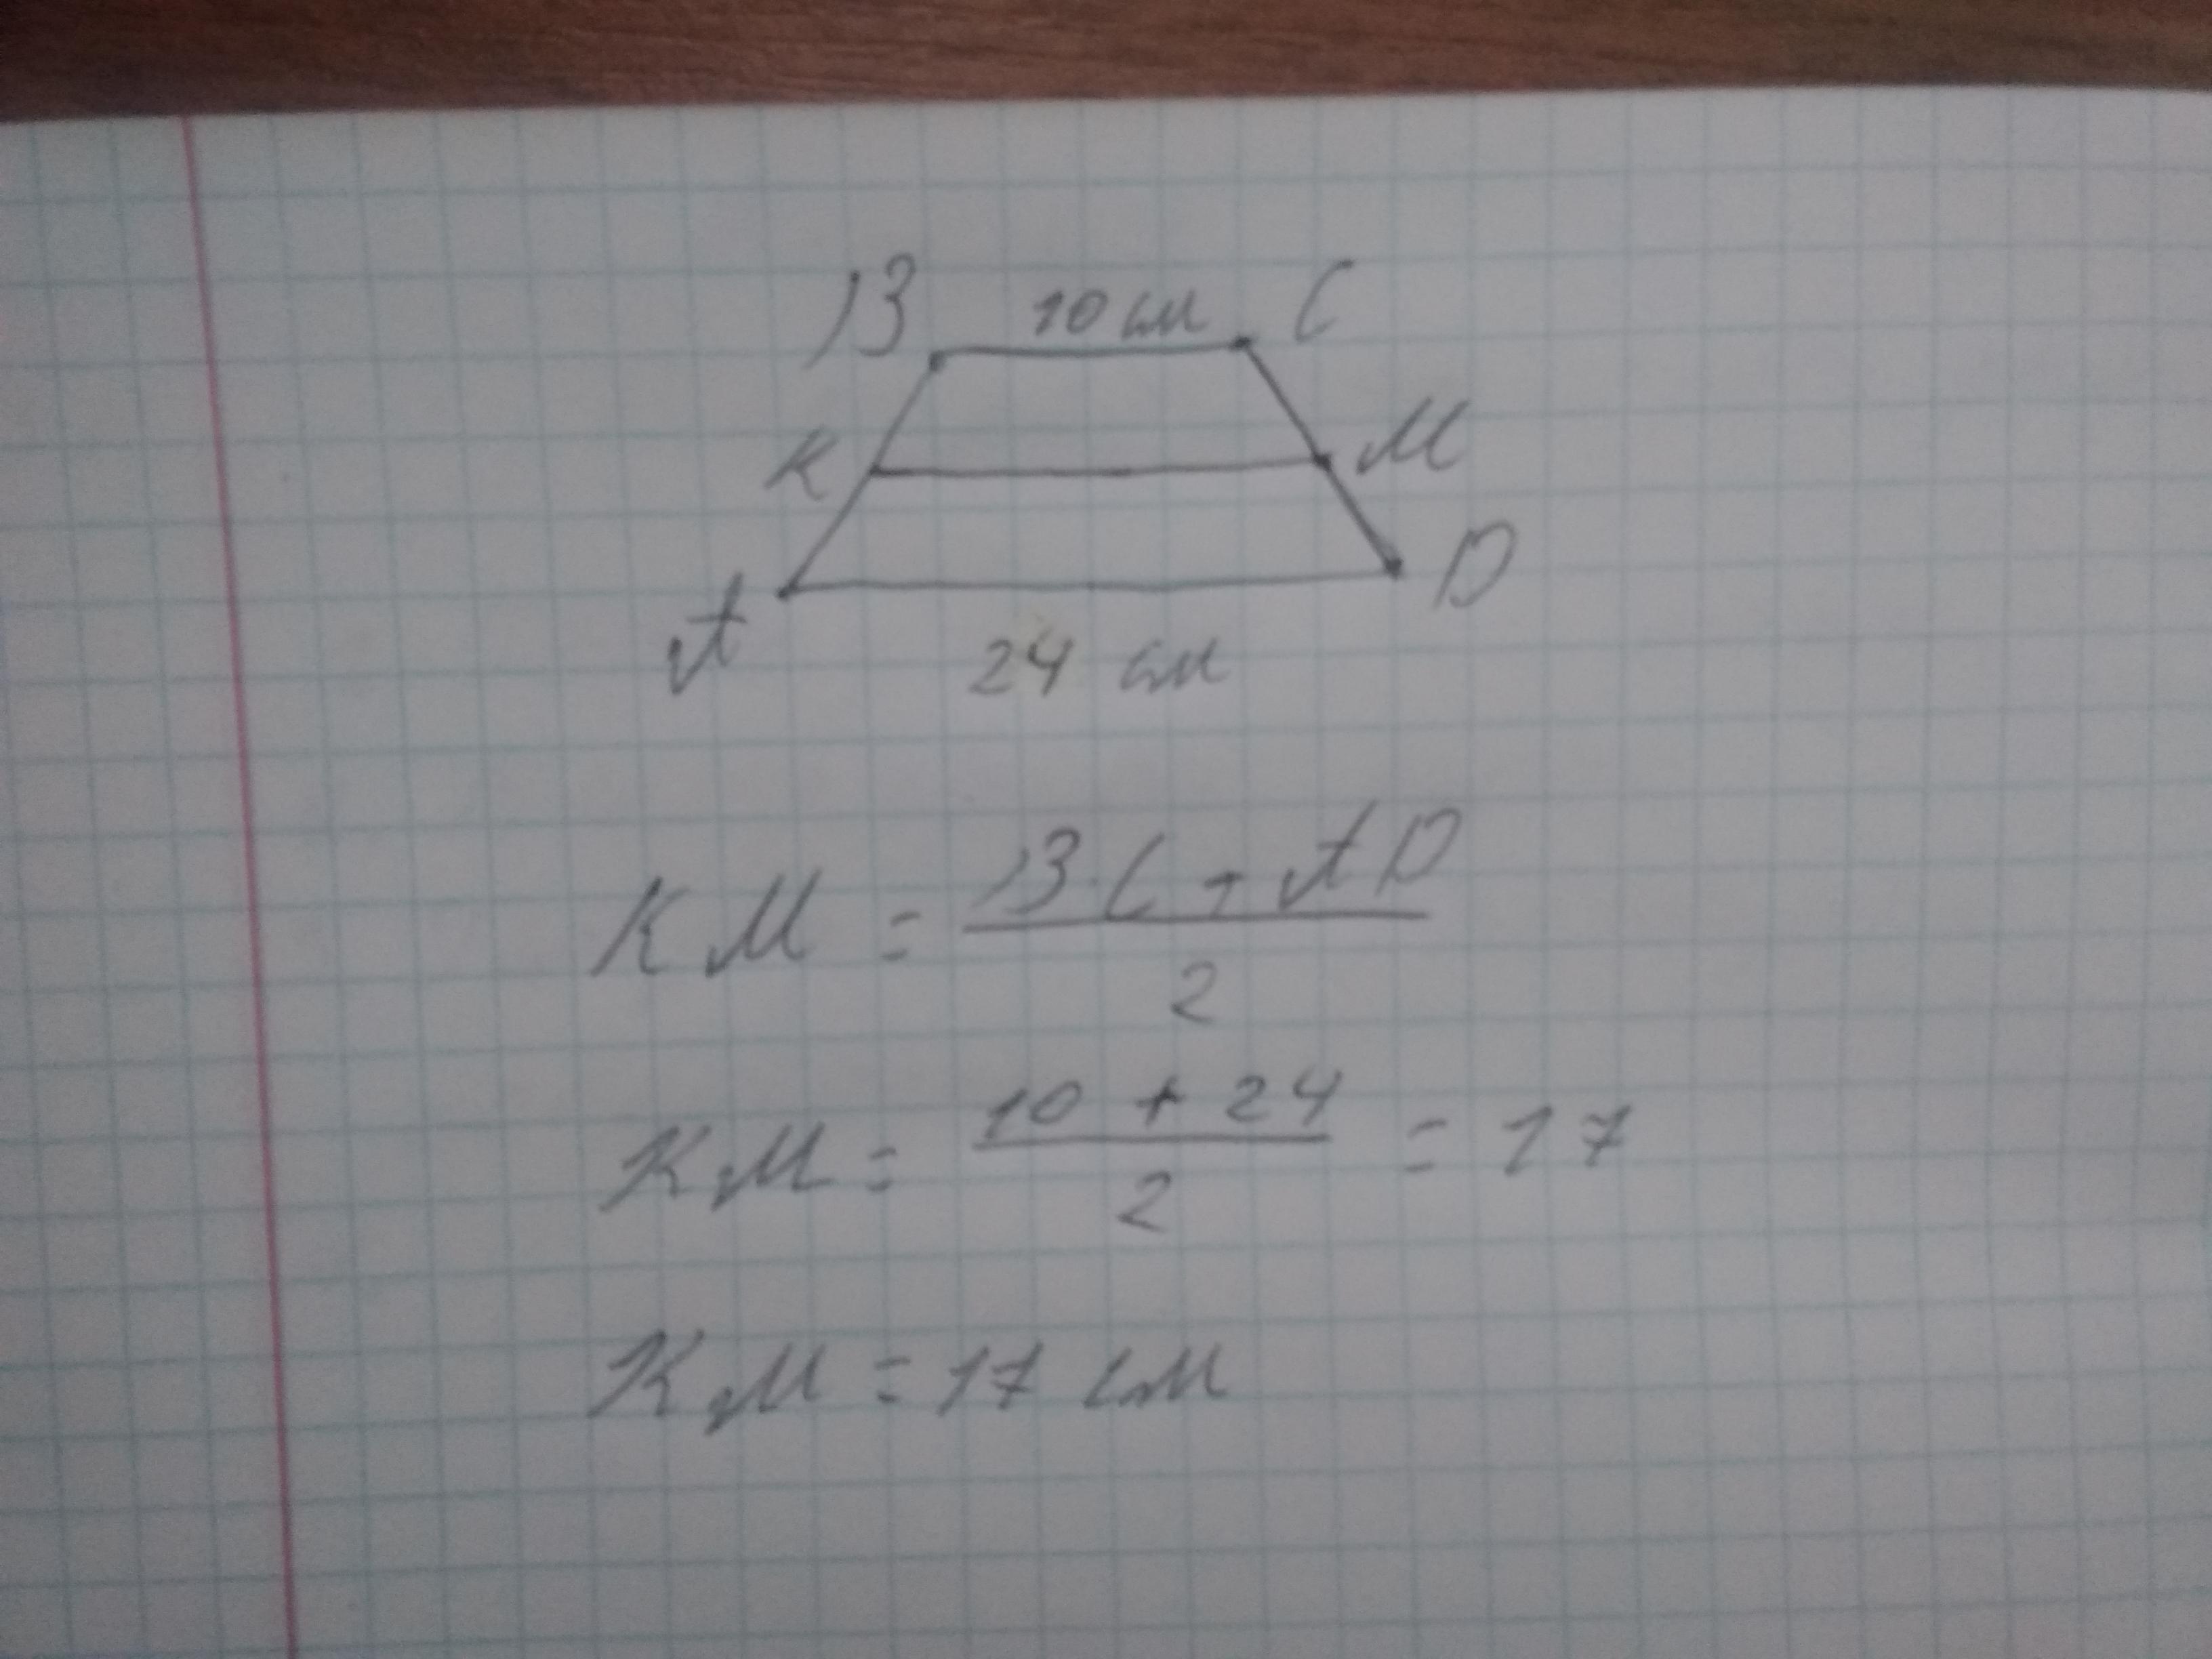 B 10 см C
K M
A D
24 см
KM = BC + AD / 2
KM = 10 + 24 / 2 = 17
KM = 17 см